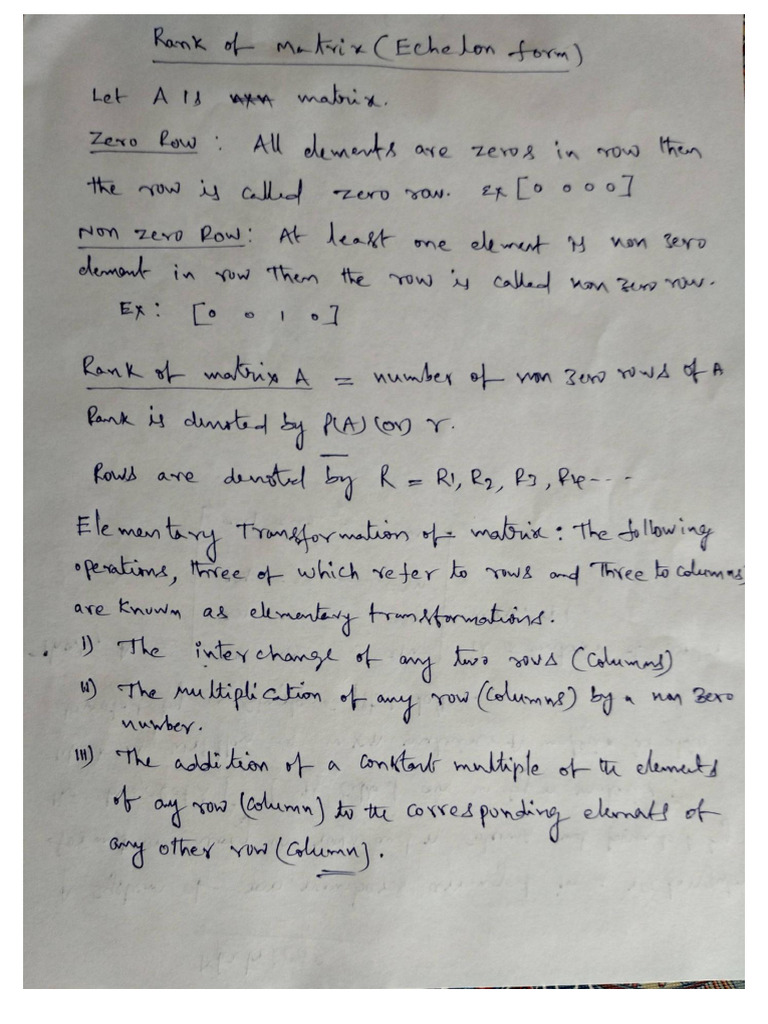 Rank of matrix (Echelon form)
Let A is matrix.
Zero Row : All elements are zeros in row then
the row is called zero row. Ex [0 0 0 0]
Non zero Row : At least one element is non zero
element in row then the row is called non zero row.
Ex : [0 0 1 0]
Rank of matrix A = number of non zero rows of A
Rank is denoted by ρ(A) (or) r.
Rows are denoted by R = R1, R2, R3, R4---
Elementary Transformation of matrix : The following
operations, three of which refer to rows and Three to columns
are known as elementary transformations.
I) The interchange of any two rows (columns)
II) The multiplication of any row (columns) by a non zero
number.
III) The addition of a constant multiple of the elements
of any row (column) to the corresponding elements of
any other row (column).